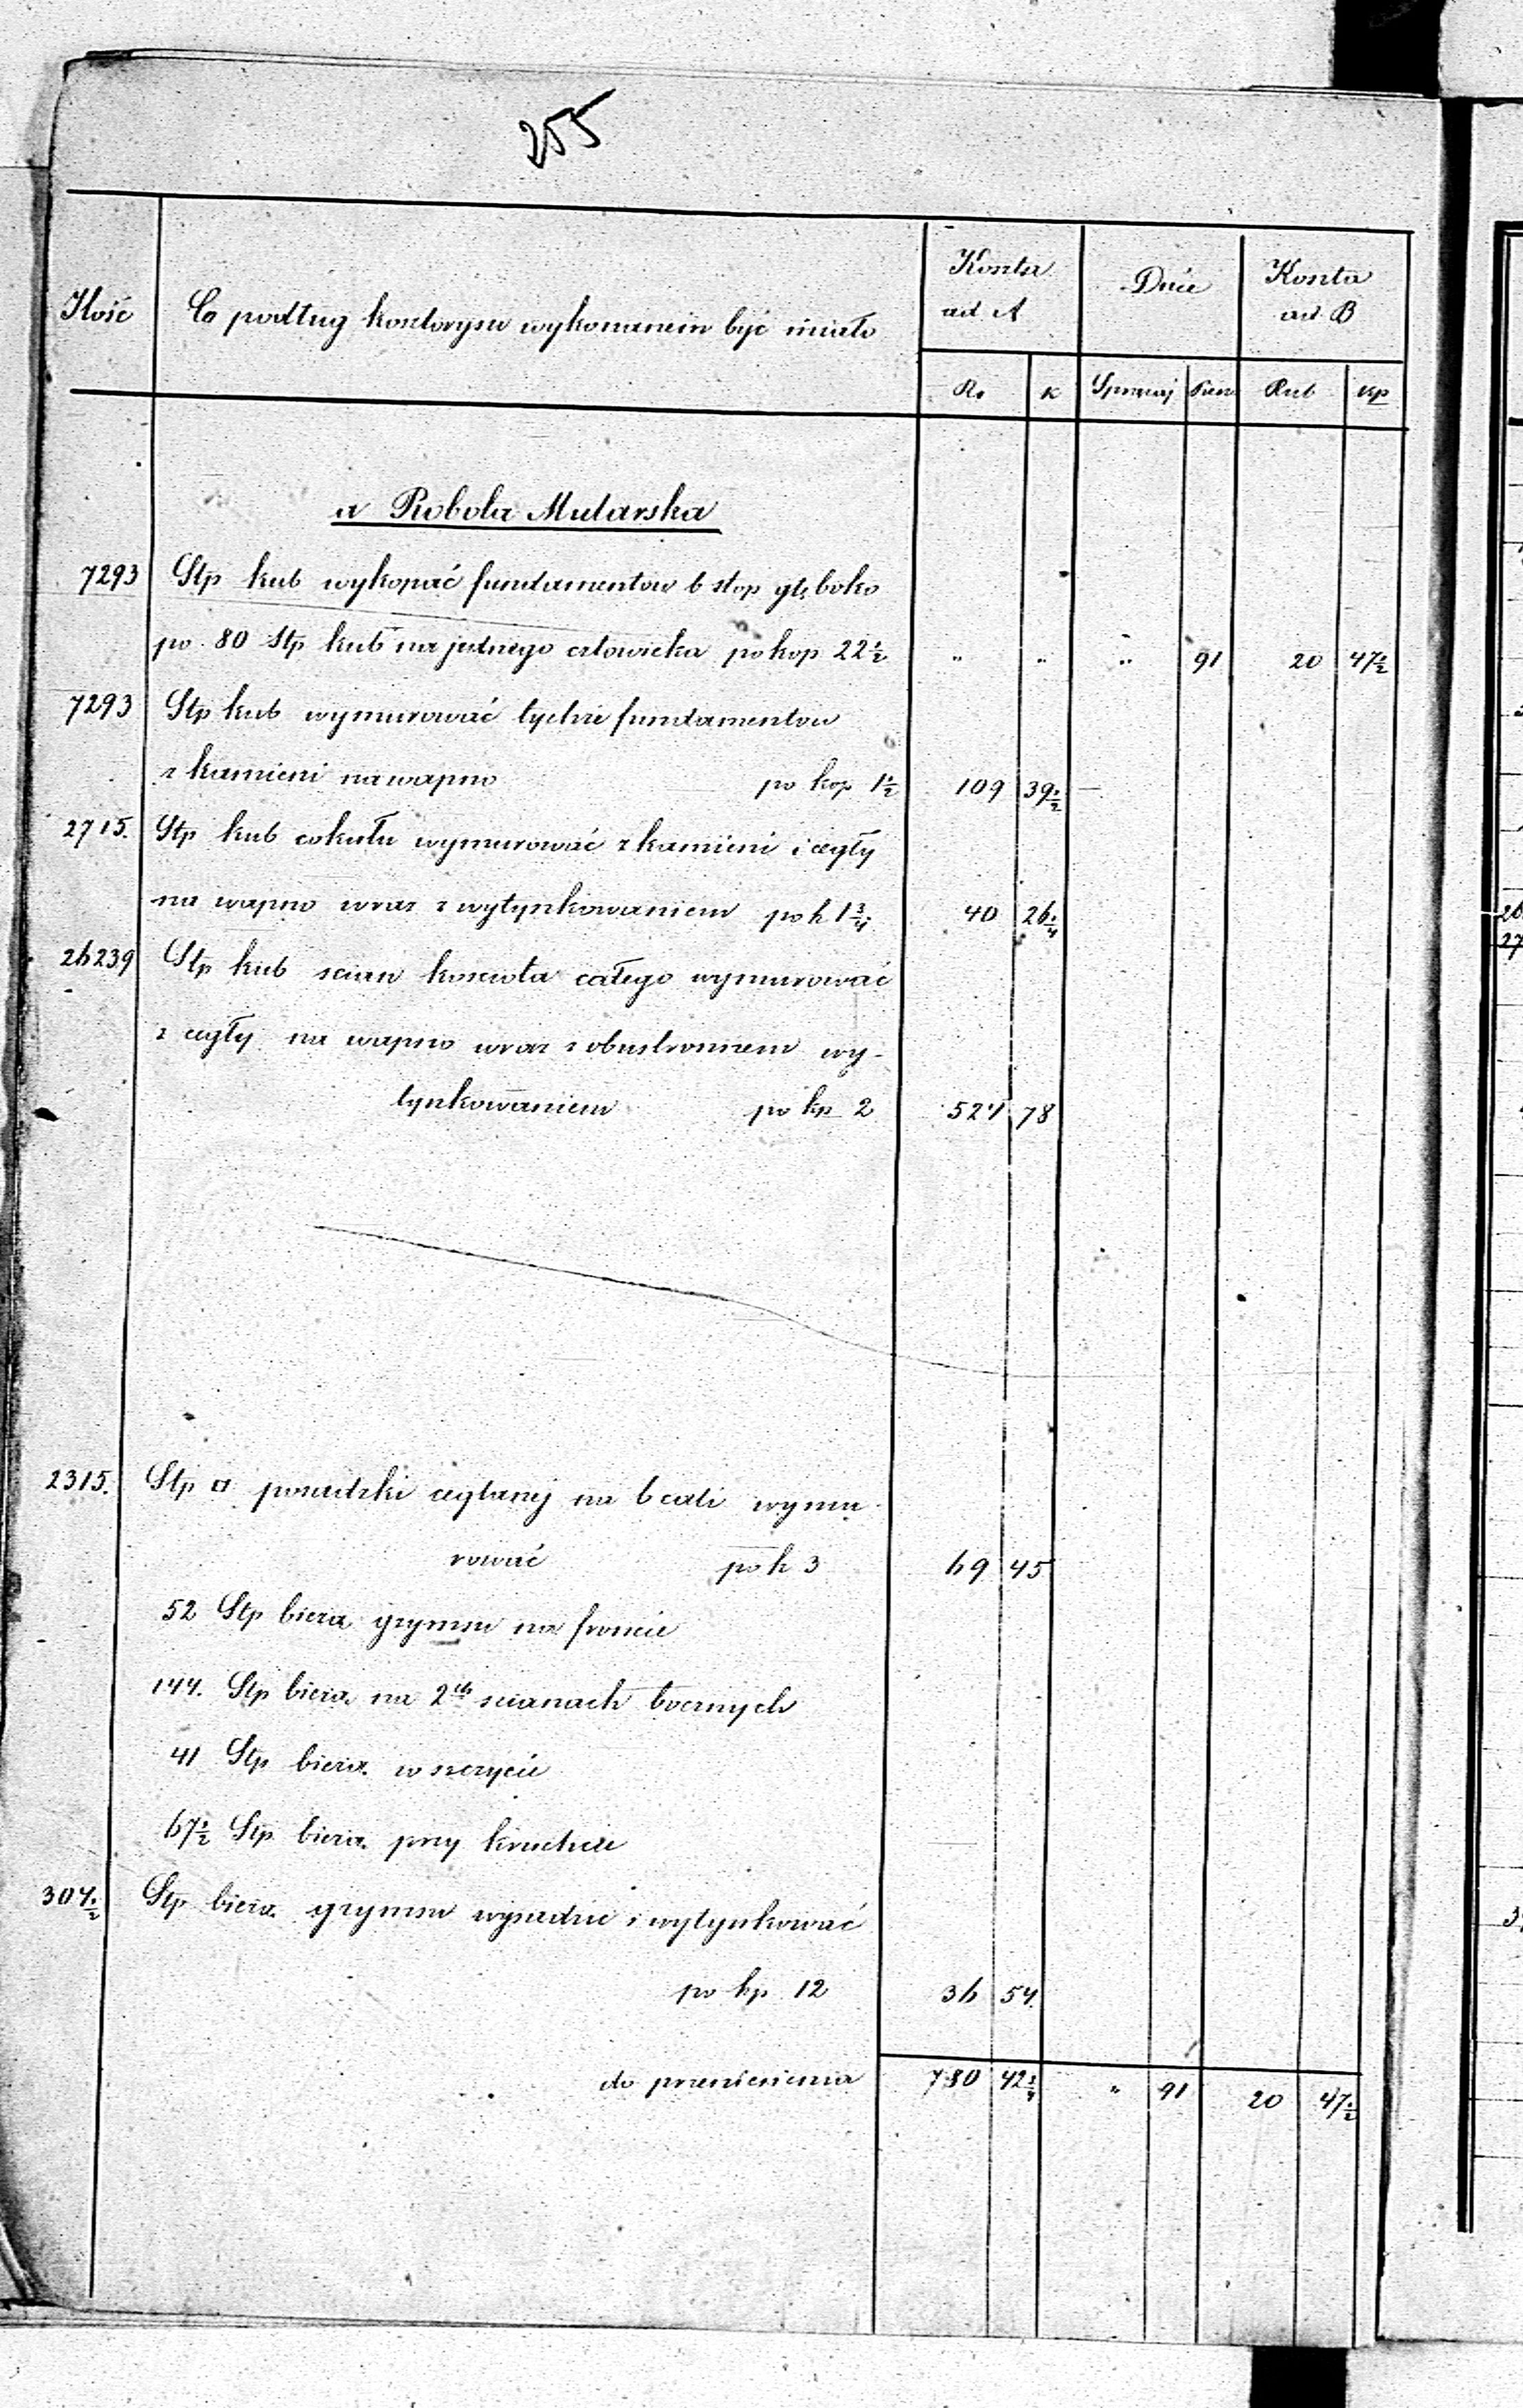 255
Ilość Co podług kosztorysu wykonanem być miało Koszta ad A Dnie Koszta ad B
Rs K Sprzężaj Piesze Rub kp
a Robota Mularska
7293 Stp kub wykopać fundamentow 6 stop głęboko
po 80 Stp kub na jednego człowieka po kop 22½ " " " 91 20 47½
7293 Stp kub wymurować tychże fundamentow
z kamieni na wapno po kop 1½ 109 39½
2715. Stp kub cokułu wymurować z kamieni i cegły
na wapno wraz z wytynkowaniem po k 1¾ 40 26¼
26239 Stp kub scian koscioła całego wymurować
z cegły na wapno wraz z obustronnem wy-
tynkowaniem po kp 2 524 78
2315. Stp □ posadzki ceglanej na 6 cali wymu
rować po k 3 69 45
52 Stp bieżą. grzymsu na froncie
144. Stp bieżą. na 2ch scianach bocznych
41 Stp bieżą. w szczycie
67½ Stp bieżą. przy kruchcie
304½ Stp bieżą. grzymsu wysadzić i wytynkować
po kp 12 36 54.
do przeniesienia 780 42¾ " 91 20 47½